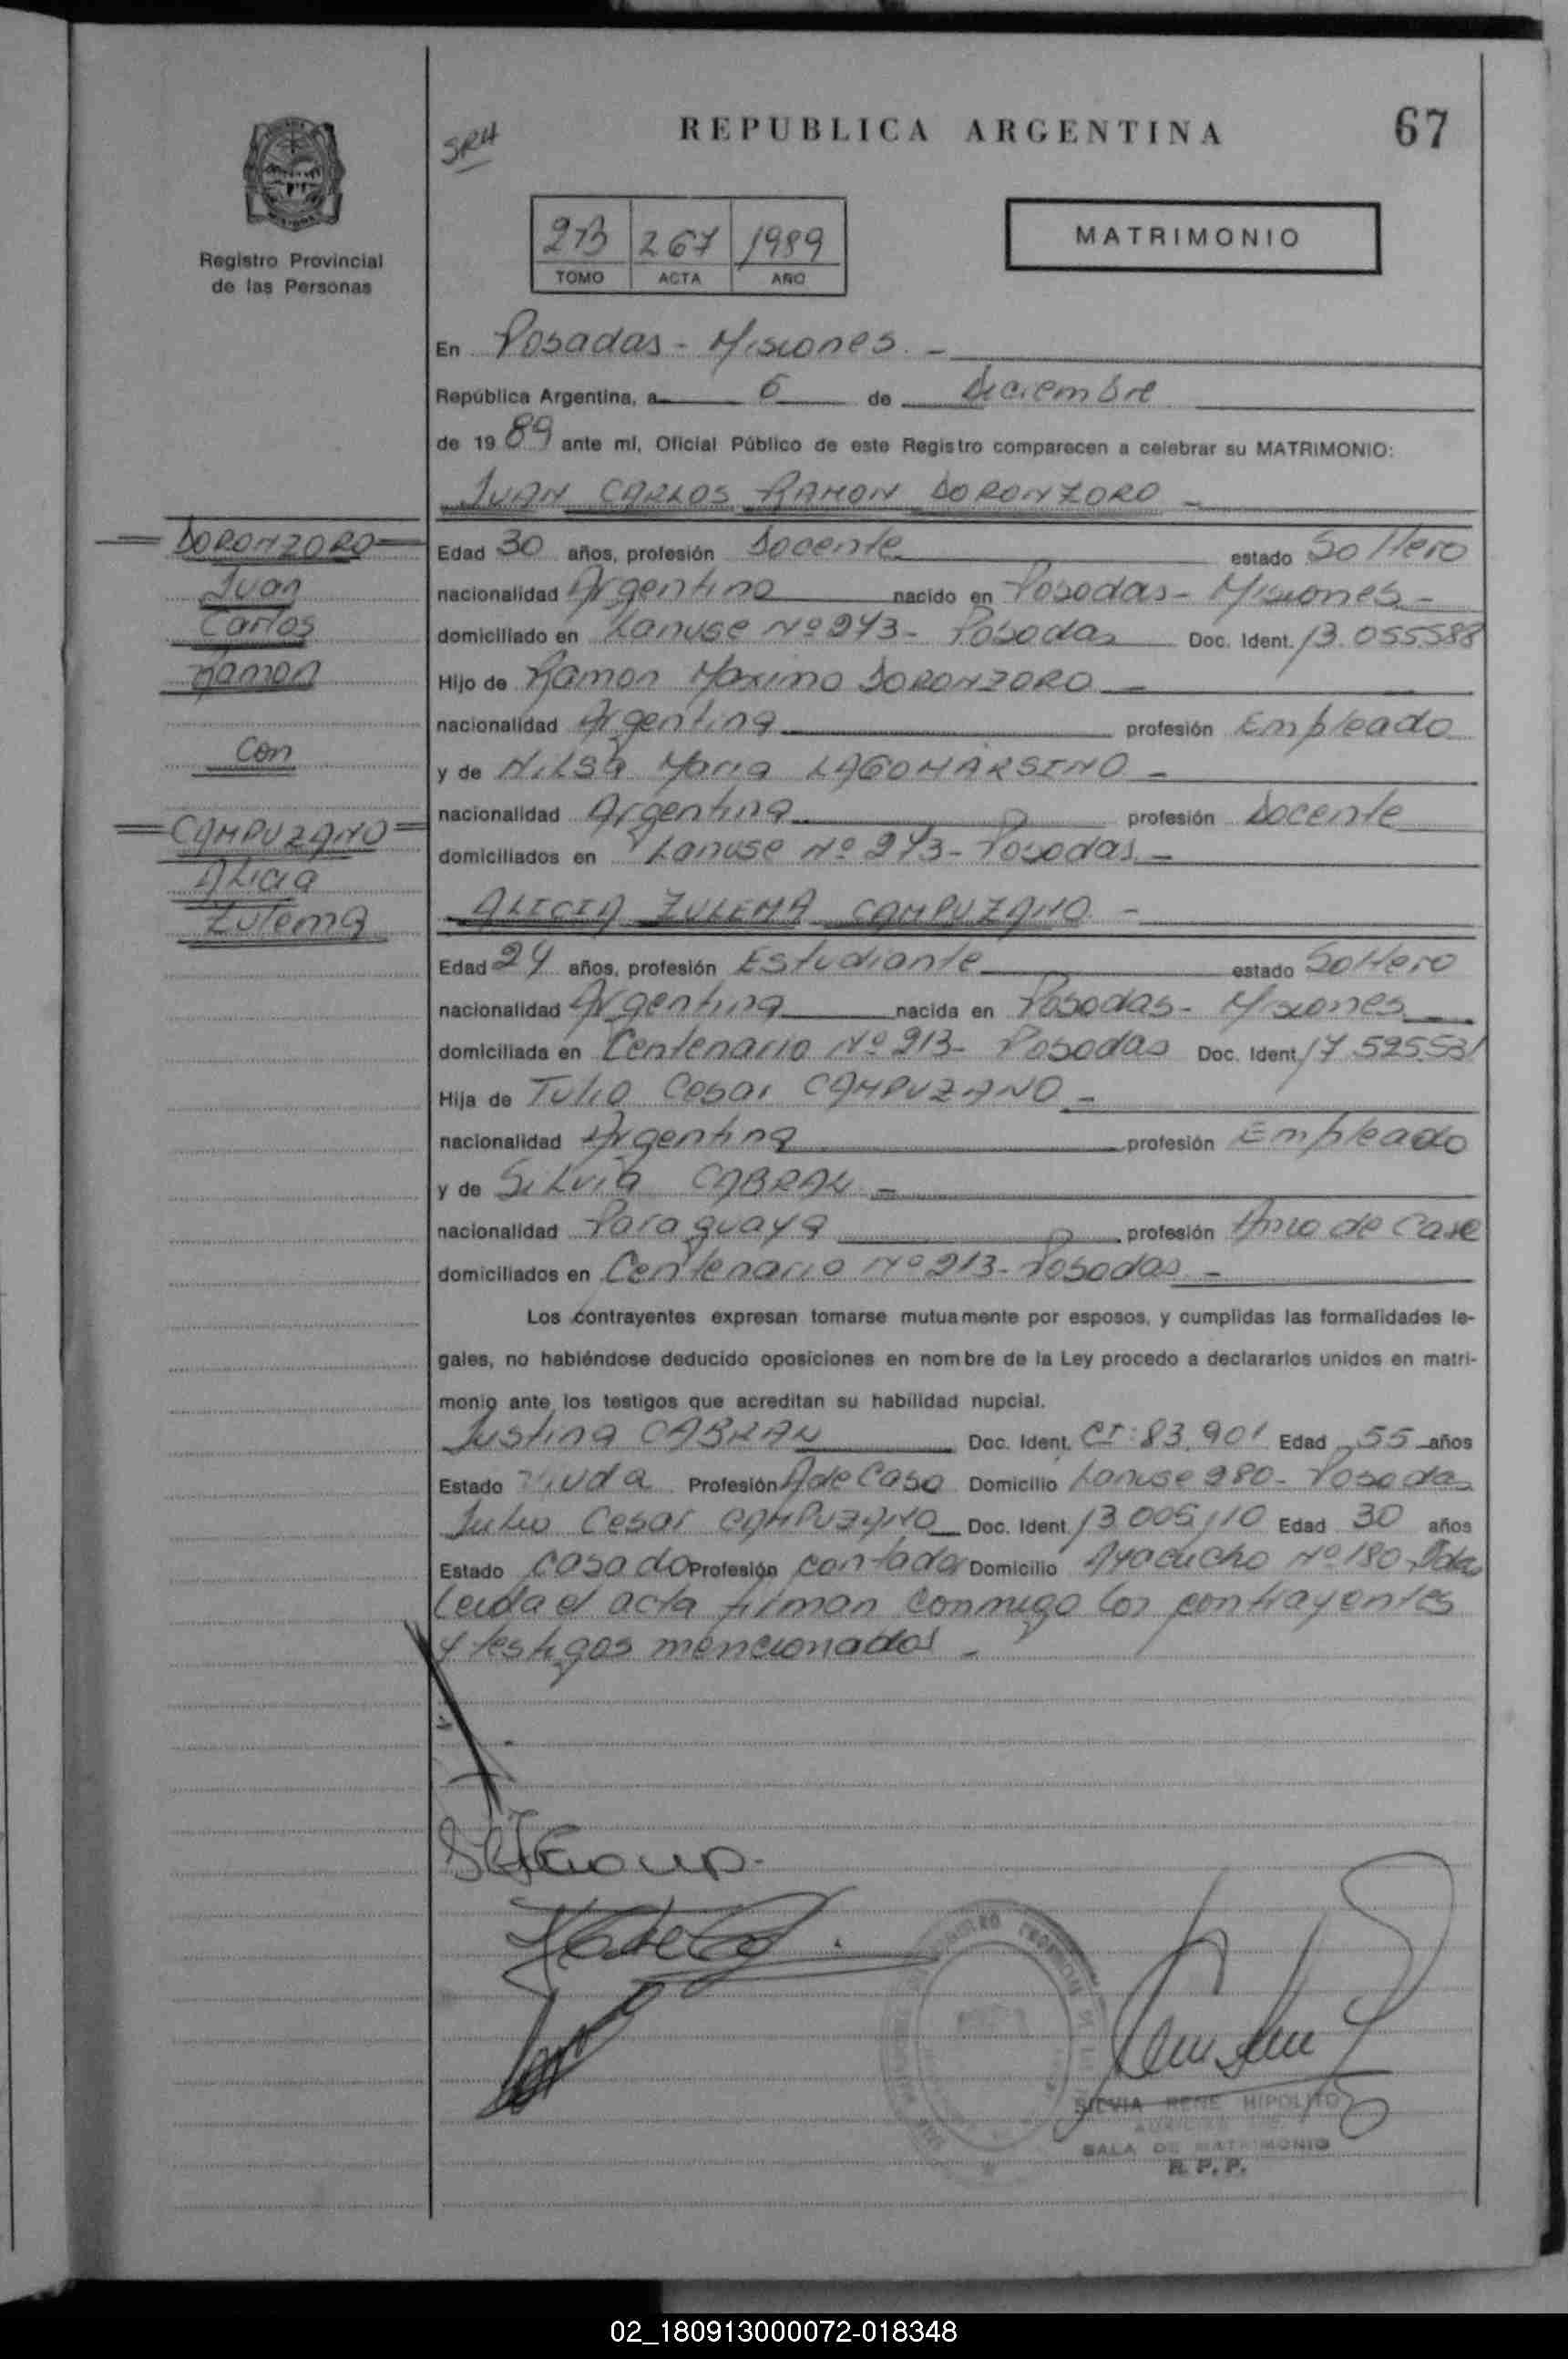 SRH
REPUBLICA ARGENTINA
67
Registro Provincial
de las Personas
2B 267 1989
TOMO ACTA AÑO
MATRIMONIO
En Posadas - Misiones. -
República Argentina, a 6 de Diciembre
de 19 89 ante mí, Oficial Público de este Registro comparecen a celebrar su MATRIMONIO:
JUAN CARLOS RAMON DORONZORO -
DORONZORO
Juan
Carlos
Ramon
con
CAMPUZANO
Alicia
Zulema
Edad 30 años, profesión Docente estado Soltero
nacionalidad Argentina nacido en Posadas - Misiones -
domiciliado en Lanuse Nº 273 - Posadas Doc. Ident. 13.055588
Hijo de Ramon Maximo DORONZORO -
nacionalidad Argentina profesión Empleado
y de Nilsa Maria LAGOMARSINO -
nacionalidad Argentina profesión Docente
domiciliados en Lanuse Nº 273 - Posadas -
ALICIA ZULEMA CAMPUZANO -
Edad 24 años, profesión Estudiante estado Soltero
nacionalidad Argentina nacida en Posadas - Misiones -
domiciliada en Centenario Nº 213 - Posadas Doc. Ident. 17.525531
Hija de Tulio Cesar CAMPUZANO -
nacionalidad Argentina profesión Empleado
y de Silvia CABRAL -
nacionalidad Paraguaya profesión Ama de Casa
domiciliados en Centenario Nº 213 - Posadas -
Los contrayentes expresan tomarse mutuamente por esposos, y cumplidas las formalidades le-
gales, no habiéndose deducido oposiciones en nombre de la Ley procedo a declararlos unidos en matri-
monio ante los testigos que acreditan su habilidad nupcial.
Justina CABRAL Doc. Ident. CI: 83.901 Edad 55 años
Estado Viuda Profesión A de Casa Domicilio Lanuse 280 - Posadas
Julio Cesar CAMPUZANO Doc. Ident. 13.005.110 Edad 30 años
Estado Casado Profesión contador Domicilio Ayacucho Nº 180 - Pdas
Leida el acta firman conmigo los contrayentes
y testigos mencionados -
SILVIA RENE HIPOLITO
SALA DE MATRIMONIO
R. P. P.
02_180913000072-018348